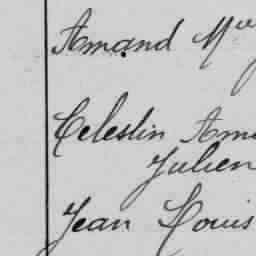 Amand
Celestin Am
Julien
Jean Louis